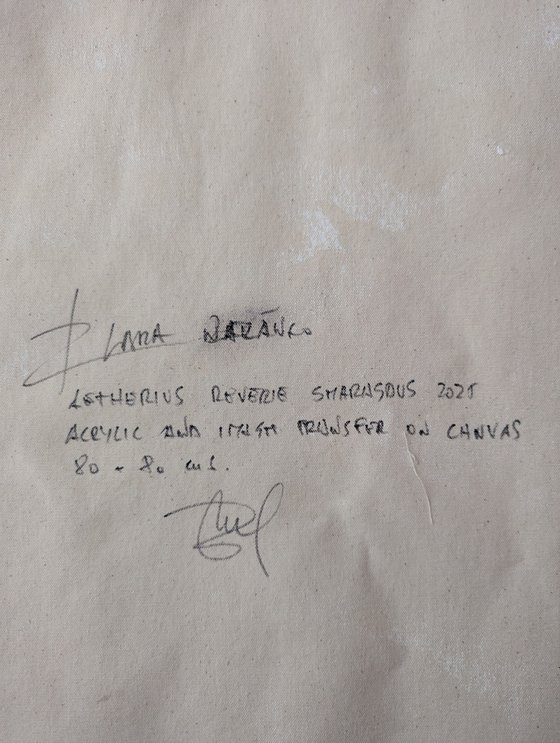 LARA NARANJO
REVERIE SMARAGDUS 2021
ACRYLIC AND IMAGE TRANSFER ON CANVAS
80 - 80 cms.